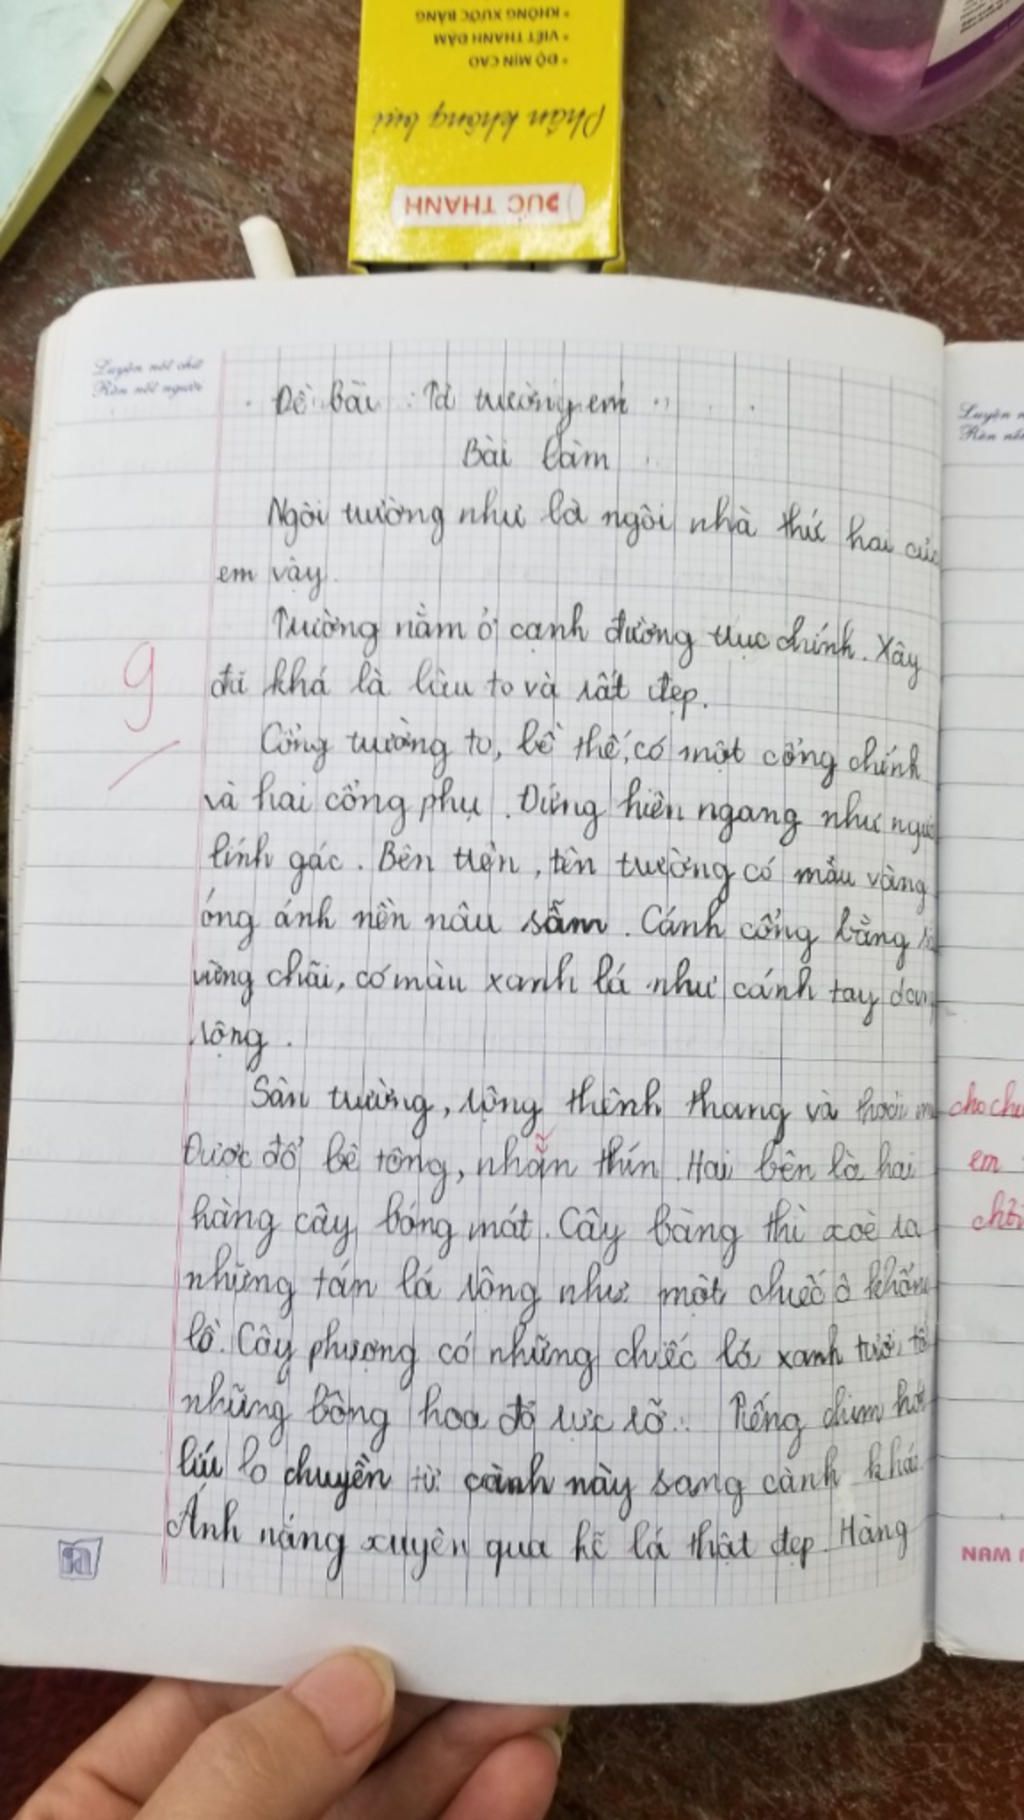 • KHÔNG XƯỚC BẢNG
• VIẾT THANH ĐẬM
• ĐỘ MỊN CAO
Phấn không bụi
ĐỨC THANH
Luyện nét chữ
Rèn nết người
Đề bài : Tả trường em
Bài làm
Ngôi trường như là ngôi nhà thứ hai của
em vậy.
Trường nằm ở cạnh đường trục chính. Xây
đã khá là lâu to và rất đẹp.
Cổng trường to, bề thế, có một cổng chính
và hai cổng phụ. Đứng hiên ngang như người
lính gác. Bên trên, tên trường có mầu vàng
óng ánh nền nâu sẫm. Cánh cổng bằng
vững chãi, có màu xanh lá như cánh tay dang
rộng.
Sân trường, rộng thênh thang và thoải
Được đổ bê tông, nhẵn thín. Hai bên là hai
hàng cây bóng mát. Cây bàng thì xoè ra
những tán lá rộng như một chiếc ô khổng
lồ. Cây phượng có những chiếc lá xanh tươi,
những bông hoa đỏ rực rỡ.. Tiếng chim hót
líu lo chuyền từ cành này sang cành khác
Ánh nắng xuyên qua kẽ lá thật đẹp. Hàng
9
Luyện n
Rèn nế
cho
em
NAM